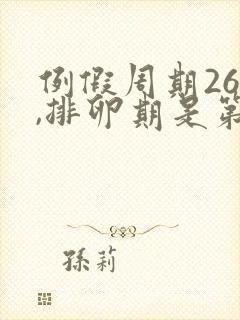 例假周期26
,排卵期是第
孫莉